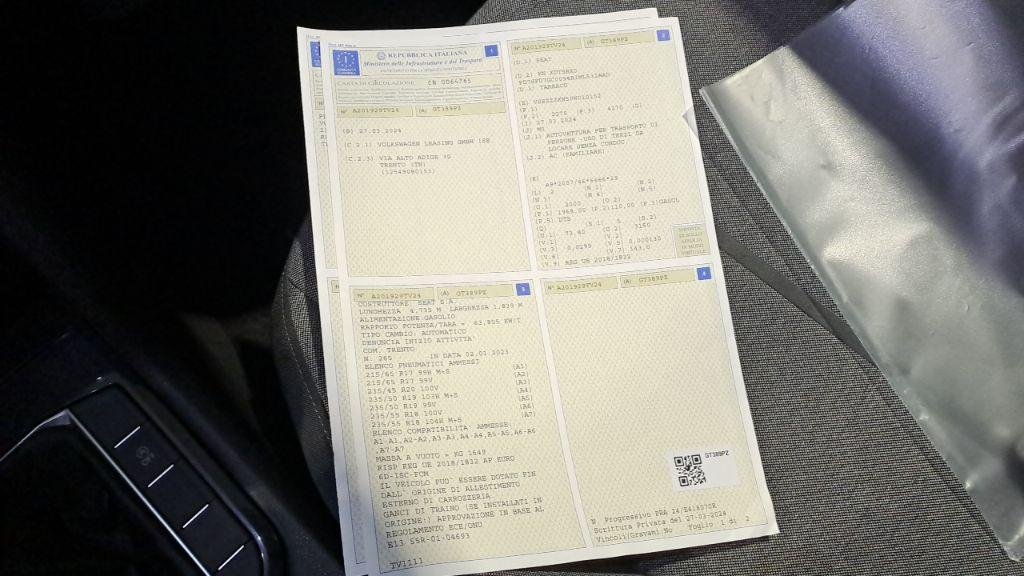 REPUBBLICA ITALIANA
1
Ministero delle Infrastrutture e dei Trasporti
I
CARTA DI CIRCOLAZIONE
CN 0064765
N° A201929TV24 (A) GT389PZ
(B) 27.03.2024
(C.2.1) VOLKSWAGEN LEASING GMBH
(C.2.3) VIA ALTO ADIGE
TRENTO (TN)
N° A201929TV24 (A) GT389PZ
2
(D.1) SEAT
(D.3) TARRACO
(E)
(F.1)
(F.2) 2270 (F.3) 4270 (G)
(I) 27.03.2024
(J) M1
(J.1) AUTOVETTURA PER TRASPORTO DI
PERSONE -USO DI TERZI DA
LOCARE SENZA CONDUC.
(J.2) AC (FAMILIARE)
(K)
(L) 2 (N.1) (N.2)
(N.3) (N.4) (N.5)
(O.1) 2000 (O.2)
(P.1) 1968,00 (P.2)110,00 (P.3)GASOL
(P.5) DTS
(Q) (S.1) 5 (S.2)
(U.1) 73,80 (U.2) 3150
(V.1) (V.2)
(V.3) 0,0295 (V.5) 0,000130
(V.6) (V.7) 163,0
(V.9) REG UE 2018/1832
N° A201929TV24 (A) GT389PZ
3
COSTRUTTORE: SEAT S.A.
LUNGHEZZA 4,735 M LARGHEZZA 1,839 M
ALIMENTAZIONE:GASOLIO
RAPPORTO POTENZA/TARA = 63,805 KW/T
TIPO CAMBIO: AUTOMATICO
DENUNCIA INIZIO ATTIVITA'
COM. TRENTO
N. 265 IN DATA 02.01.2023
ELENCO PNEUMATICI AMMESSI
215/65 R17 99H M+S (A1)
215/65 R17 99V (A2)
235/45 R20 100V (A3)
235/50 R19 103H M+S (A4)
235/50 R19 99V (A5)
235/55 R18 100V (A6)
235/55 R18 104H M+S (A7)
ELENCO COMPATIBILITA AMMESSE
A1-A1,A2-A2,A3-A3,A4-A4,A5-A5,A6-A6
,A7-A7
MASSA A VUOTO = KG 1649
RISP REG UE 2018/1832 AP EURO
6D-ISC-FCM
IL VEICOLO PUO' ESSERE DOTATO FIN
DALL' ORIGINE DI ALLESTIMENTO
ESTERNO DI CARROZZERIA
GANCI DI TRAINO (SE INSTALLATI IN
ORIGINE:) APPROVAZIONE IN BASE AL
REGOLAMENTO ECE/ONU
E13 55R-01-04693
TV1111
N° A201929TV24 (A) GT389PZ
4
GT389PZ
N. Progressivo PRA
Scrittura Privata del 27-03-2024
Vincoli/Gravami No Foglio 1 di 2